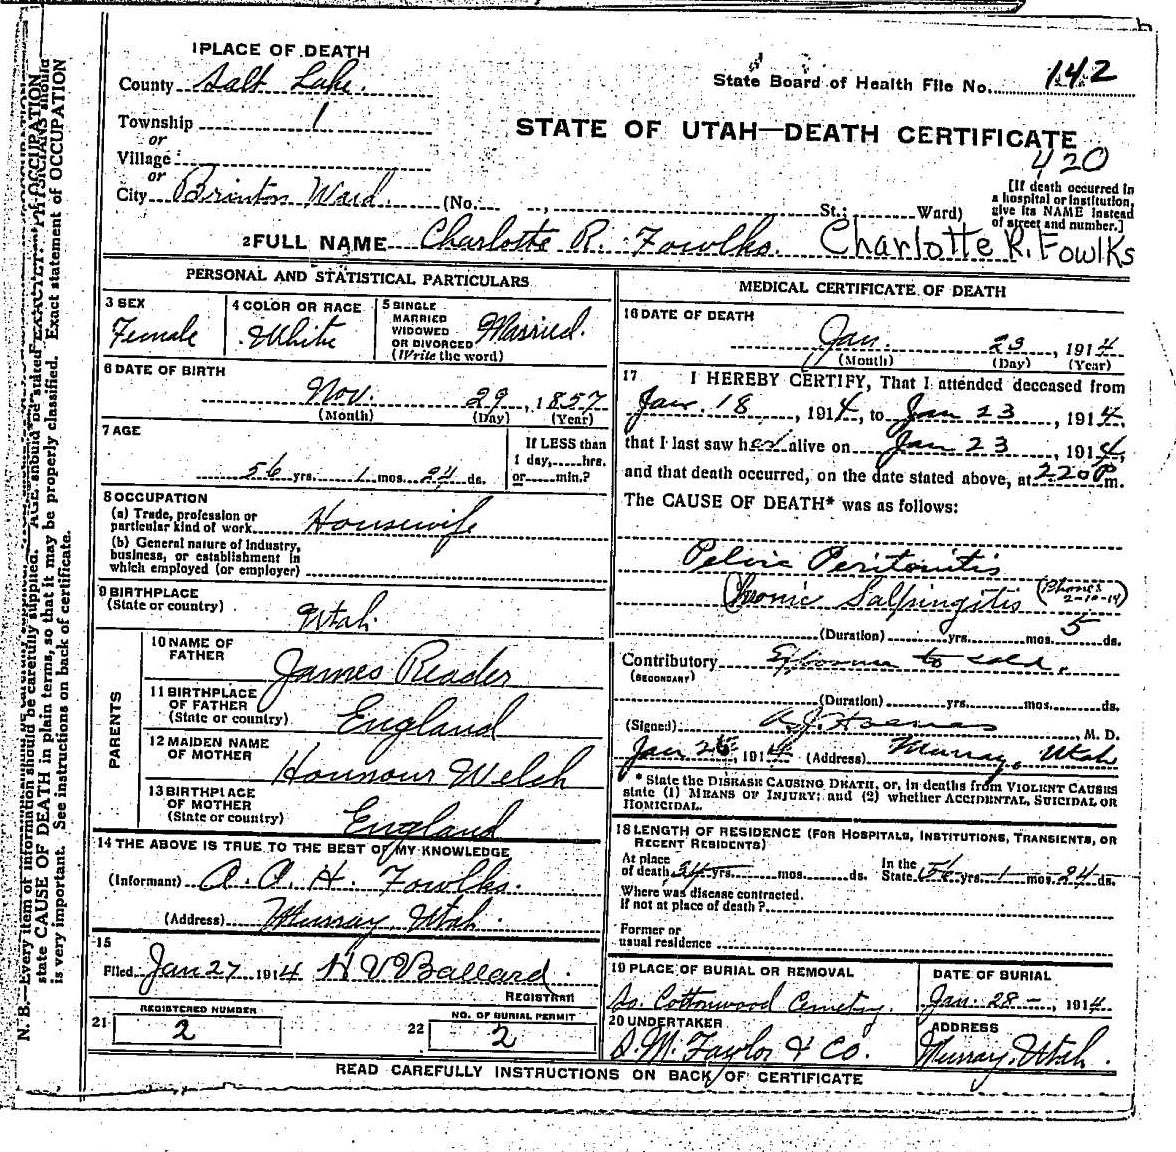 1 PLACE OF DEATH
County Salt Lake
State Board of Health File No. 142
Township 1
or
Village
or
City Brinton Ward (No. , St.; Ward)
STATE OF UTAH—DEATH CERTIFICATE
420
[If death occurred in
a hospital or institution,
give its NAME instead
of street and number.]
2 FULL NAME Charlotte R. Fowlks. Charlotte R. Fowlks
PERSONAL AND STATISTICAL PARTICULARS
3 SEX
Female
4 COLOR OR RACE
White
5 SINGLE
MARRIED
WIDOWED
OR DIVORCED
(Write the word)
Married.
6 DATE OF BIRTH
Nov. 29, 1857
(Month) (Day) (Year)
7 AGE
56 yrs. 1 mos. 24 ds.
If LESS than
1 day, hrs.
or min.?
8 OCCUPATION
(a) Trade, profession or
particular kind of work Housewife
(b) General nature of industry,
business, or establishment in
which employed (or employer)
9 BIRTHPLACE
(State or country)
Utah.
PARENTS
10 NAME OF
FATHER
James Reader
11 BIRTHPLACE
OF FATHER
(State or country)
England
12 MAIDEN NAME
OF MOTHER
Honnour Welch
13 BIRTHPLACE
OF MOTHER
(State or country)
England
14 THE ABOVE IS TRUE TO THE BEST OF MY KNOWLEDGE
(Informant) A. A. H. Fowlks.
(Address) Murray Utah.
15
Filed Jan 27 1914 H V Ballard.
REGISTRAR
REGISTERED NUMBER
21 2
NO. OF BURIAL PERMIT
22 2
MEDICAL CERTIFICATE OF DEATH
16 DATE OF DEATH
Jan. 23, 1914
(Month) (Day) (Year)
17 I HEREBY CERTIFY, That I attended deceased from
Jan. 18, 1914, to Jan 23, 1914,
that I last saw her alive on Jan 23, 1914,
and that death occurred, on the date stated above, at 220 P m.
The CAUSE OF DEATH* was as follows:
Pelvic Peritonitis
Chronic Salpingitis (Phones
2-10-14)
(Duration) yrs. mos. 5 ds.
Contributory to cold.
(SECONDARY)
(Duration) yrs. mos. ds.
(Signed) M. D.
Jan 26, 1914 (Address) Murray, Utah
* State the DISEASE CAUSING DEATH, or, in deaths from VIOLENT CAUSES
state (1) MEANS OF INJURY; and (2) whether ACCIDENTAL, SUICIDAL OR
HOMICIDAL.
18 LENGTH OF RESIDENCE (FOR HOSPITALS, INSTITUTIONS, TRANSIENTS, OR
RECENT RESIDENTS)
At place
of death 34 yrs. mos. ds.
In the
State 56 yrs. 1 mos. 24 ds.
Where was disease contracted.
if not at place of death?
Former or
usual residence
19 PLACE OF BURIAL OR REMOVAL
So. Cottonwood Cemetery.
DATE OF BURIAL
Jan. 28 -, 1914
20 UNDERTAKER
S. M. Taylor & Co.
ADDRESS
Murray, Utah.
READ CAREFULLY INSTRUCTIONS ON BACK OF CERTIFICATE
N. B.—Every item of information should be carefully supplied. AGE should be stated EXACTLY.
state CAUSE OF DEATH in plain terms, so that it may be properly classified. Exact statement of OCCUPATION
is very important. See instructions on back of certificate.